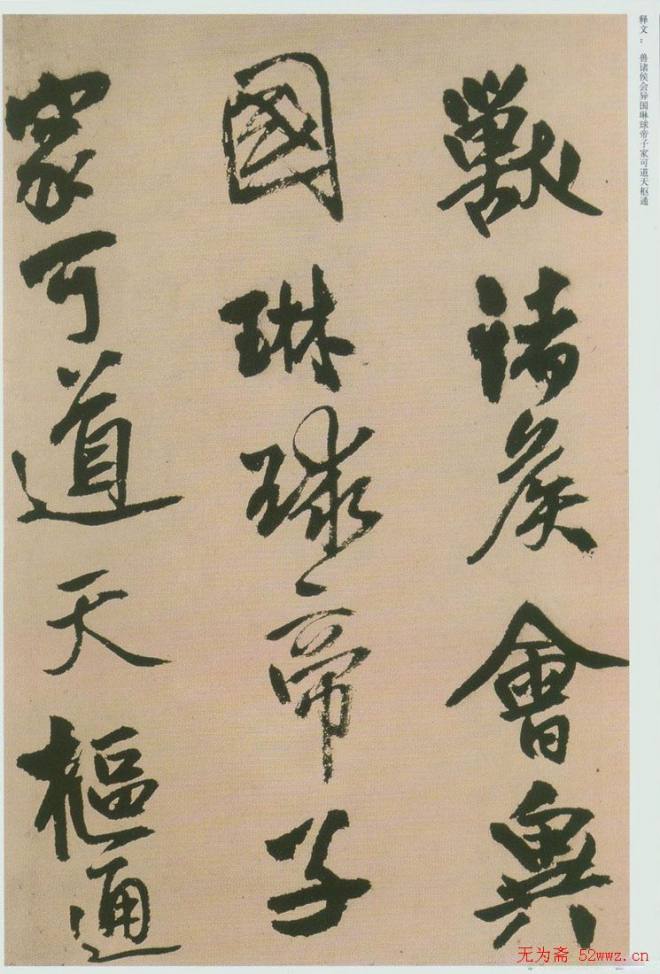 释文： 兽诸侯会异国琳球帝子家可道天枢通
獸諸侯會異
國琳球帝子
家可道天樞通
无为斋 52wwz.cn